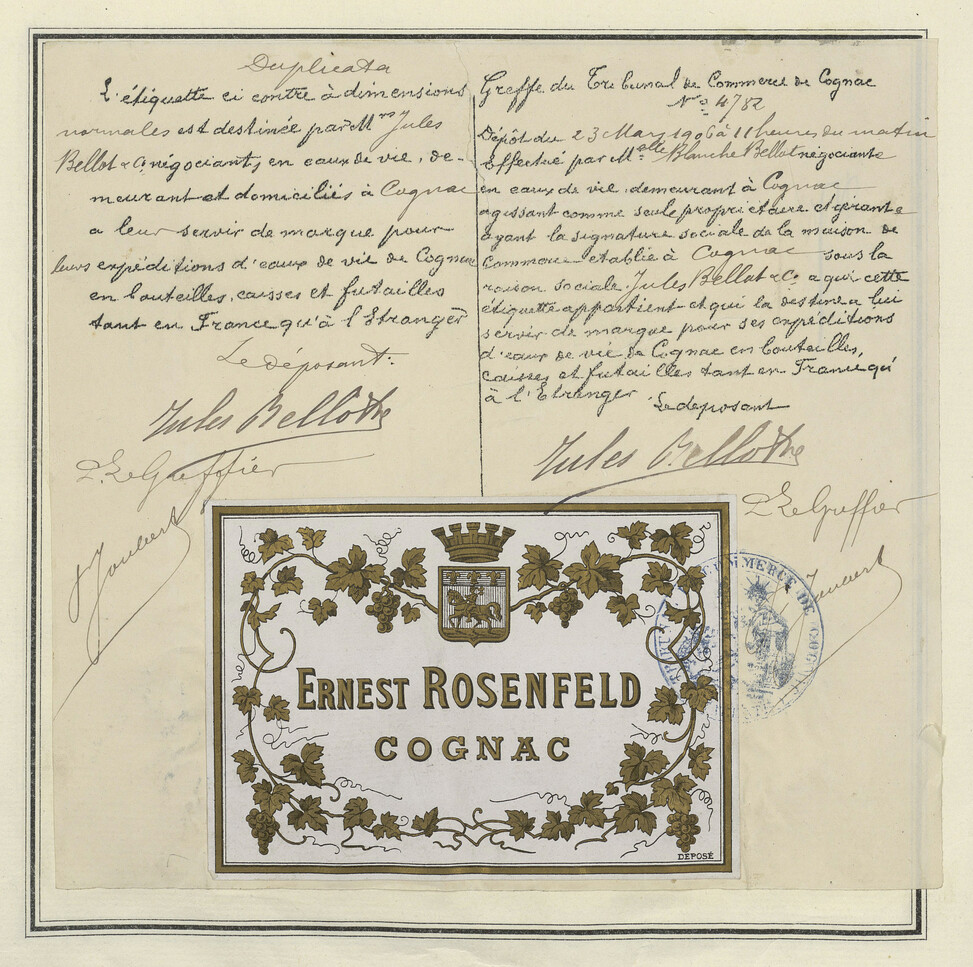 Duplicata
L'étiquette ci contre à dimensions
normales est destinée par Mrs Jules
Bellot & Co négociants en eaux de vie, de-
meurant et domiciliés à Cognac
a leur servir de marque pour
leurs expéditions d'eaux de vie de Cognac
en bouteilles, caisses et futailles
tant en France qu'à l'Etranger
Le déposant.
Jules Bellot & Co
P. Le Greffier
Joubert
Greffe du Tribunal de Commerce de Cognac
No 4782
Dépôt du 23 May 1906 à 11 heures du matin
Effectué par Melle Blanche Bellot négociante
en eaux de vie, demeurant à Cognac
agissant comme seule propriétaire et gérante
ayant la signature sociale de la maison de
Commerce etablie à Cognac sous la
raison sociale Jules Bellot & Co a qui cette
étiquette appartient et qui la destine a lui
servir de marque pour ses expéditions
d'eaux de vie de Cognac en bouteilles,
caisses et futailles tant en France qu'
à l'Etranger
Le deposant
Jules Bellot & Co
P. Le Greffier
Joubert
ERNEST ROSENFELD
COGNAC
DÉPOSÉ
COMMERCE DE COGNAC